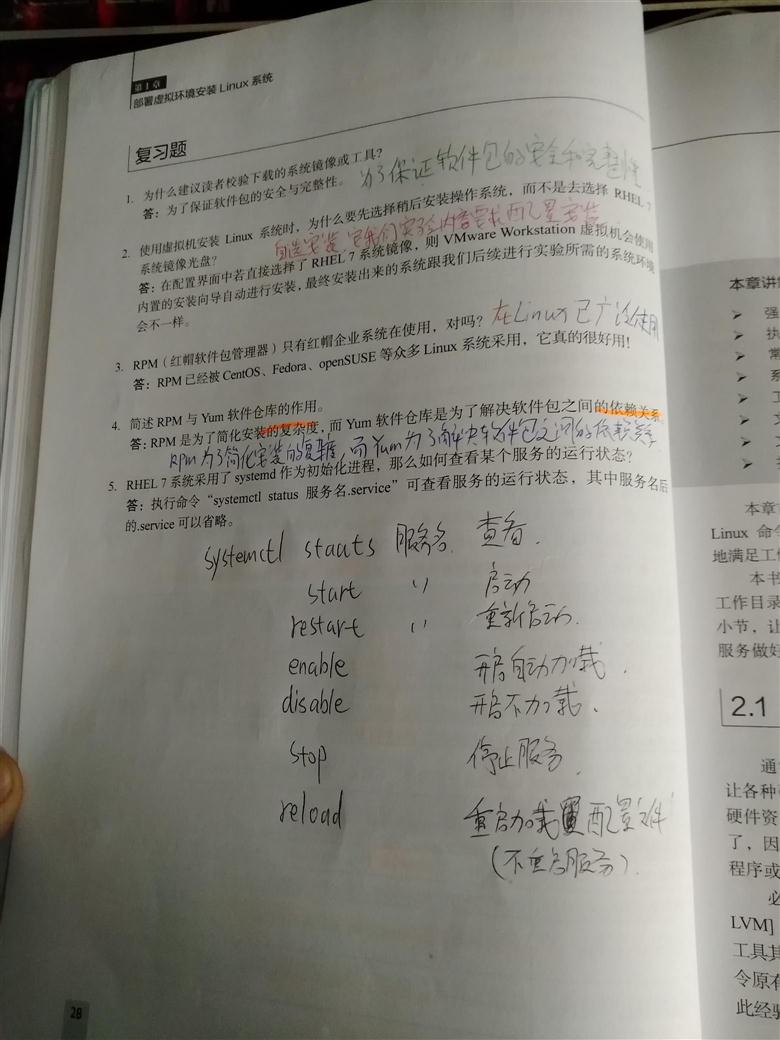 第1章
部署虚拟环境安装 Linux 系统
复习题
1. 为什么建议读者校验下载的系统镜像或工具？
为了保证软件包的安全和完整性
答：为了保证软件包的安全与完整性。
2. 使用虚拟机安装 Linux 系统时，为什么要先选择稍后安装操作系统，而不是去选择 RHEL 7
系统镜像光盘？
答：在配置界面中若直接选择了 RHEL 7 系统镜像，则 VMware Workstation 虚拟机会使用
内置的安装向导自动进行安装，最终安装出来的系统跟我们后续进行实验所需的系统环境
会不一样。
3. RPM（红帽软件包管理器）只有红帽企业系统在使用，对吗？
在Linux已广泛使用
答：RPM 已经被 CentOS、Fedora、openSUSE 等众多 Linux 系统采用，它真的很好用！
4. 简述 RPM 与 Yum 软件仓库的作用。
答：RPM 是为了简化安装的复杂度，而 Yum 软件仓库是为了解决软件包之间的依赖关系。
Rpm为了简化安装的复杂度，而Yum为了解决软件包之间的依赖关系
5. RHEL 7 系统采用了 systemd 作为初始化进程，那么如何查看某个服务的运行状态？
答：执行命令“systemctl status 服务名.service”可查看服务的运行状态，其中服务名后
的.service 可以省略。
systemctl stauts 服务名 查看.
start 〃 启动
restart 〃 重新启动.
enable 开启自动加载.
disable 开启不加载.
stop 停止服务.
reload 重启加载 配置文件
(不重启服务).
28
本章讲
本章
Linux 命
地满足工
本书
工作目录
小节，让
服务做好
2.1
通
让各种
硬件资
了，因
程序或
必
LVM]
工具其
令原有
此经验